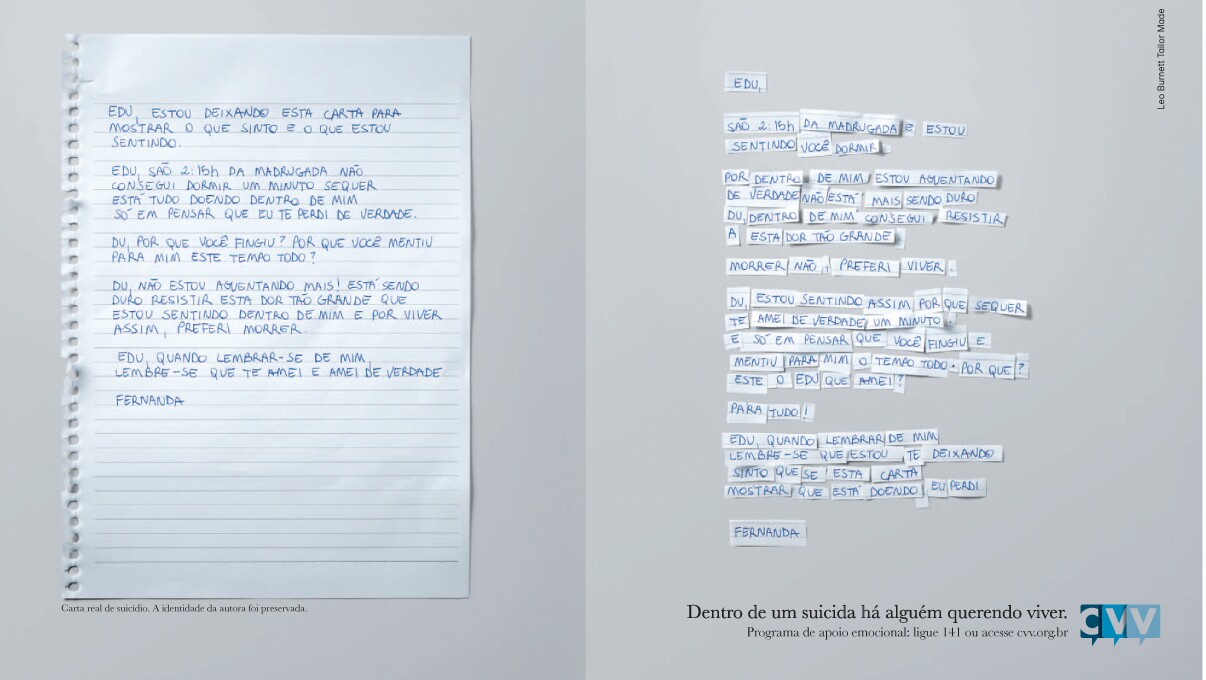 EDU, ESTOU DEIXANDO ESTA CARTA PARA
MOSTRAR O QUE SINTO E O QUE ESTOU
SENTINDO.
EDU, SÃO 2:15h DA MADRUGADA NÃO
CONSEGUI DORMIR UM MINUTO SEQUER
ESTÁ TUDO DOENDO DENTRO DE MIM
SÓ EM PENSAR QUE EU TE PERDI DE VERDADE.
DU, POR QUE VOCÊ FINGIU? POR QUE VOCÊ MENTIU
PARA MIM ESTE TEMPO TODO?
DU, NÃO ESTOU AGUENTANDO MAIS! ESTÁ SENDO
DURO RESISTIR ESTA DOR TÃO GRANDE QUE
ESTOU SENTINDO DENTRO DE MIM E POR VIVER
ASSIM, PREFERI MORRER.
EDU, QUANDO LEMBRAR-SE DE MIM,
LEMBRE-SE QUE TE AMEI E AMEI DE VERDADE
FERNANDA
Carta real de suicídio. A identidade da autora foi preservada.
EDU,
SÃO 2:15h DA MADRUGADA E ESTOU
SENTINDO VOCÊ DORMIR.
POR DENTRO DE MIM, ESTOU AGUENTANDO
DE VERDADE NÃO ESTÁ MAIS SENDO DURO
DU, DENTRO DE MIM CONSEGUI, RESISTIR
A ESTA DOR TÃO GRANDE.
MORRER NÃO, PREFERI VIVER.
DU, ESTOU SENTINDO ASSIM POR QUE SEQUER
TE AMEI DE VERDADE, UM MINUTO.
E, SÓ EM PENSAR QUE VOCÊ FINGIU E
MENTIU PARA MIM O TEMPO TODO. POR QUE?
ESTE O EDU QUE AMEI?
PARA TUDO!
EDU, QUANDO LEMBRAR DE MIM
LEMBRE-SE QUE ESTOU TE DEIXANDO
SINTO QUE SE ESTA CARTA
MOSTRAR, QUE ESTÁ DOENDO, EU PERDI.
FERNANDA
Dentro de um suicida há alguém querendo viver.
Programa de apoio emocional: ligue 141 ou acesse cvv.org.br
CVV
Leo Burnett Tailor Made